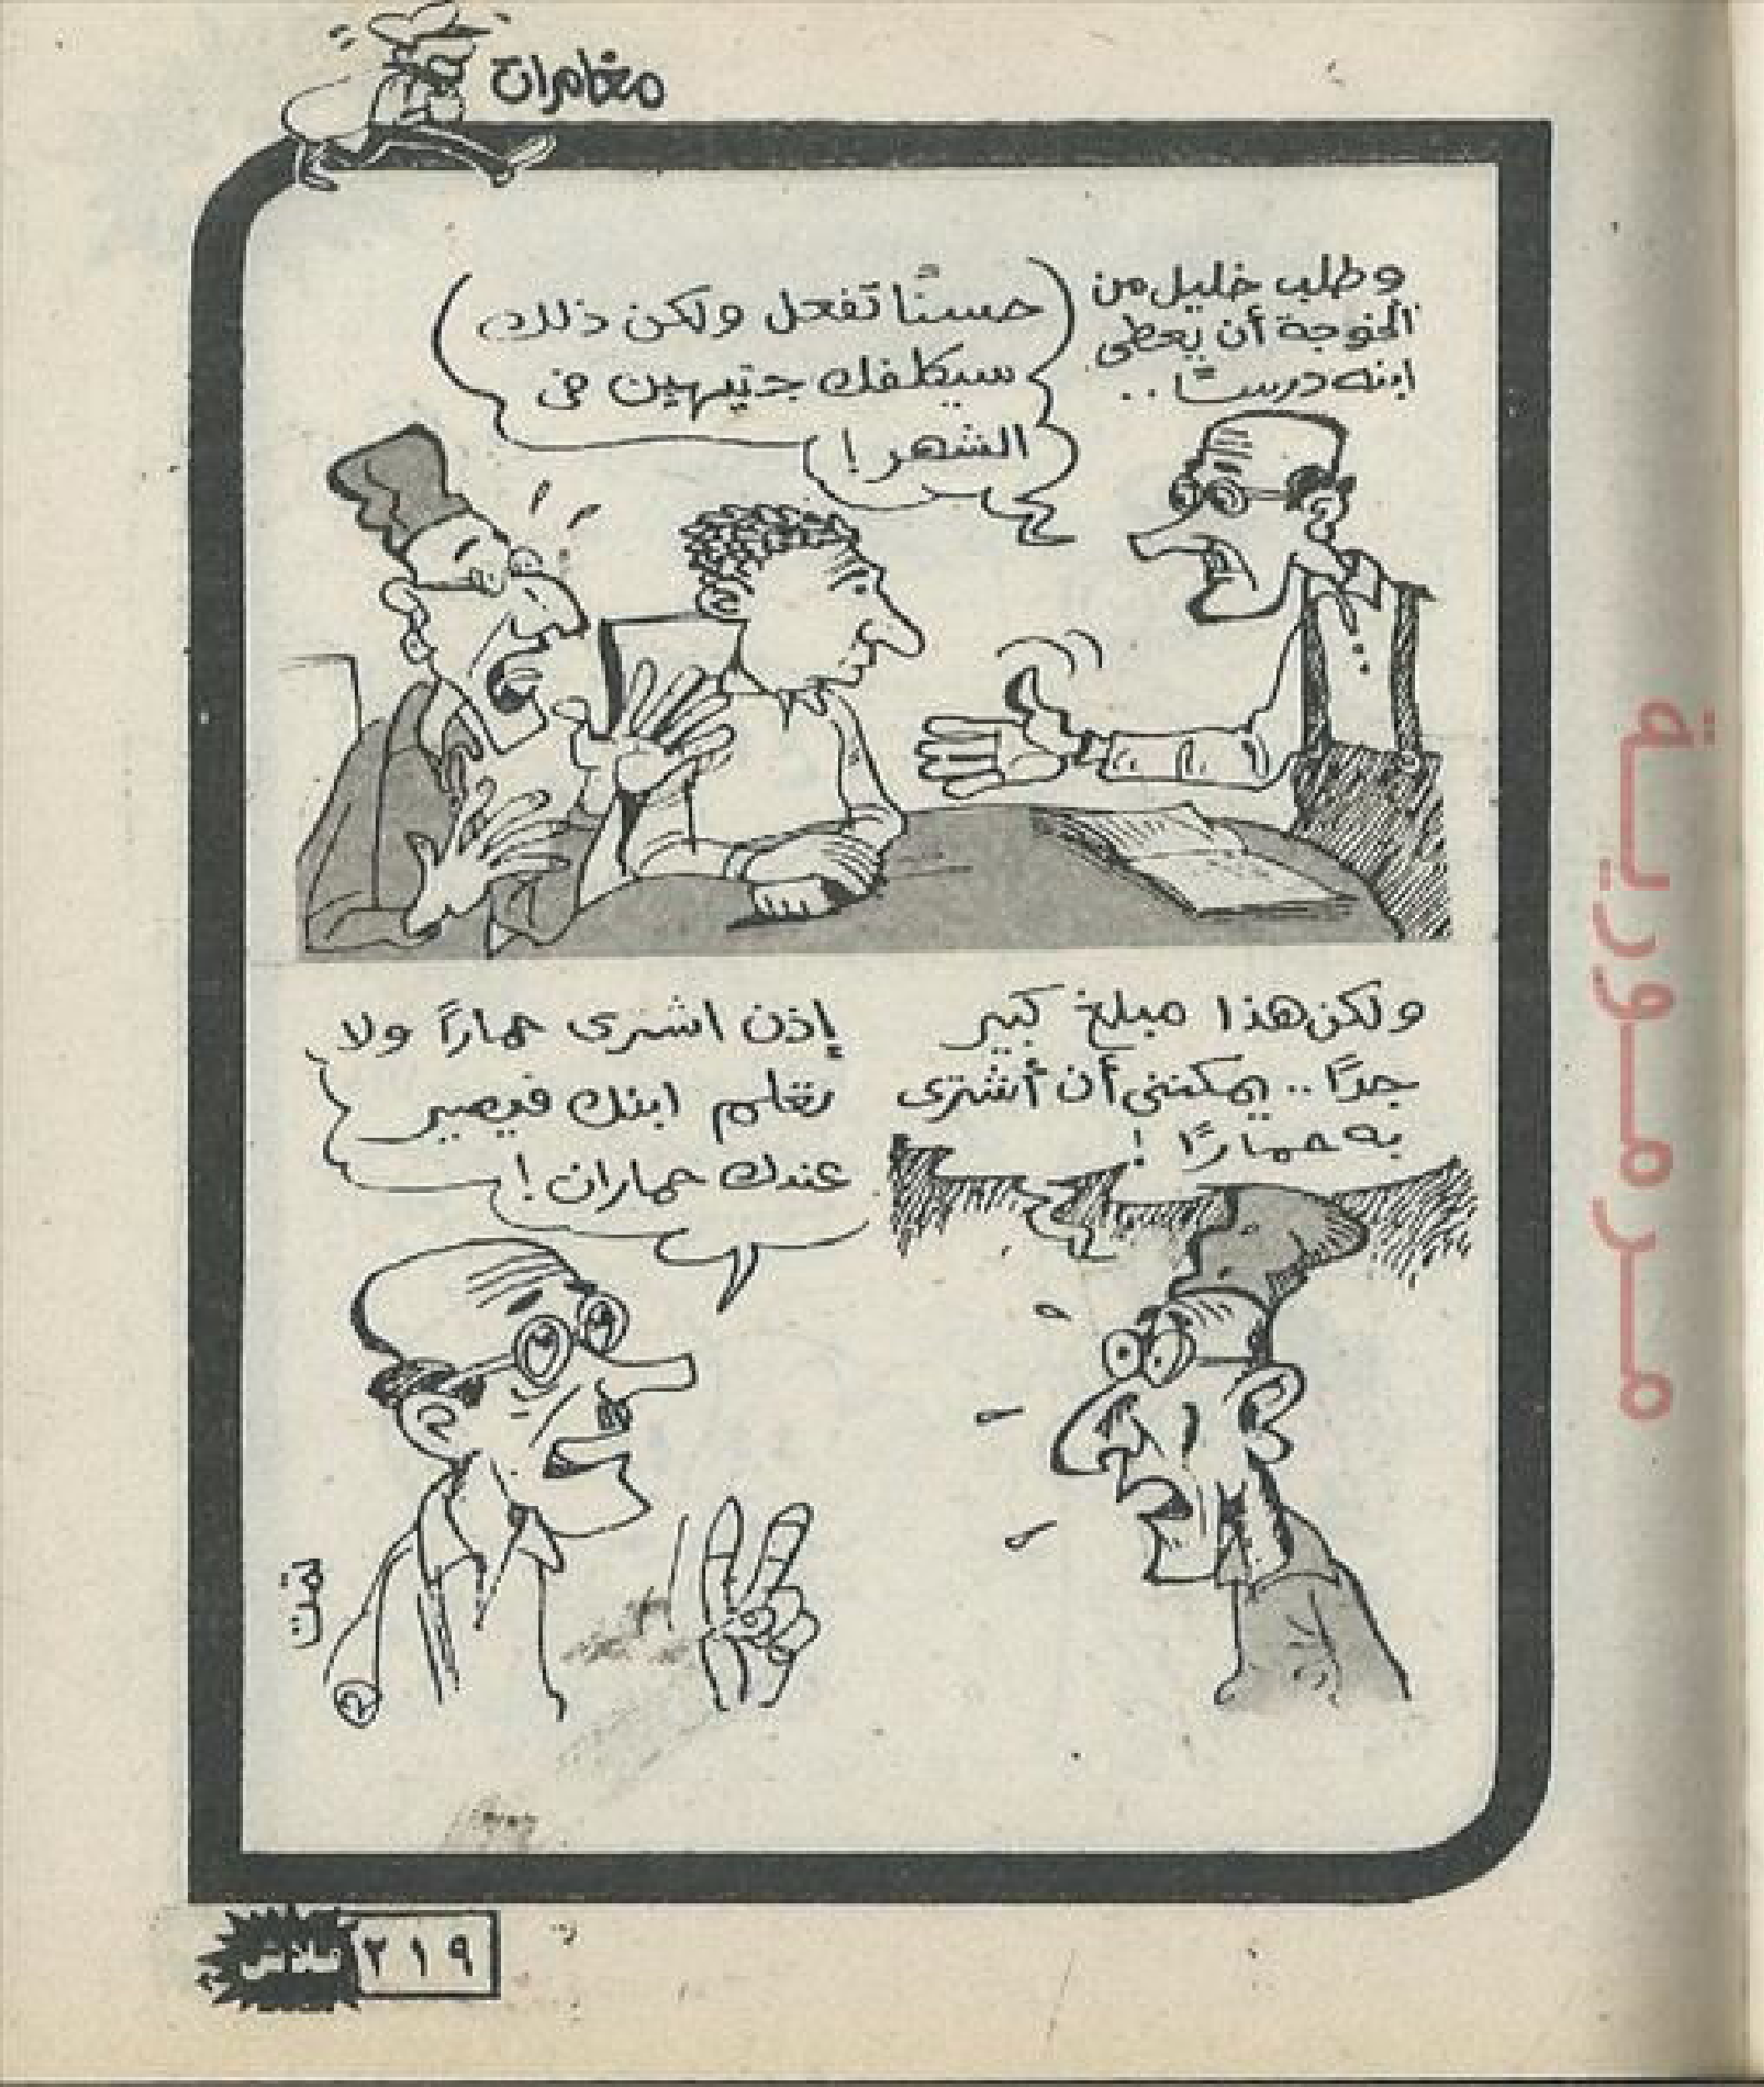 مغامرات
وطلب خليل من
الخوجة أن يعطى
ابنه درسًا..
حسنًا تفعل ولكن ذلك
سيكلفك جنيهين فى
الشهر!
ولكن هذا مبلغ كبير
جدًا.. يمكننى أن أشترى
به حمارًا!
إذن اشترى حمارًا ولا
تعلم ابنك فيصير
عندك حماران!
تمت
فلاش
٢١٩
مرمورية